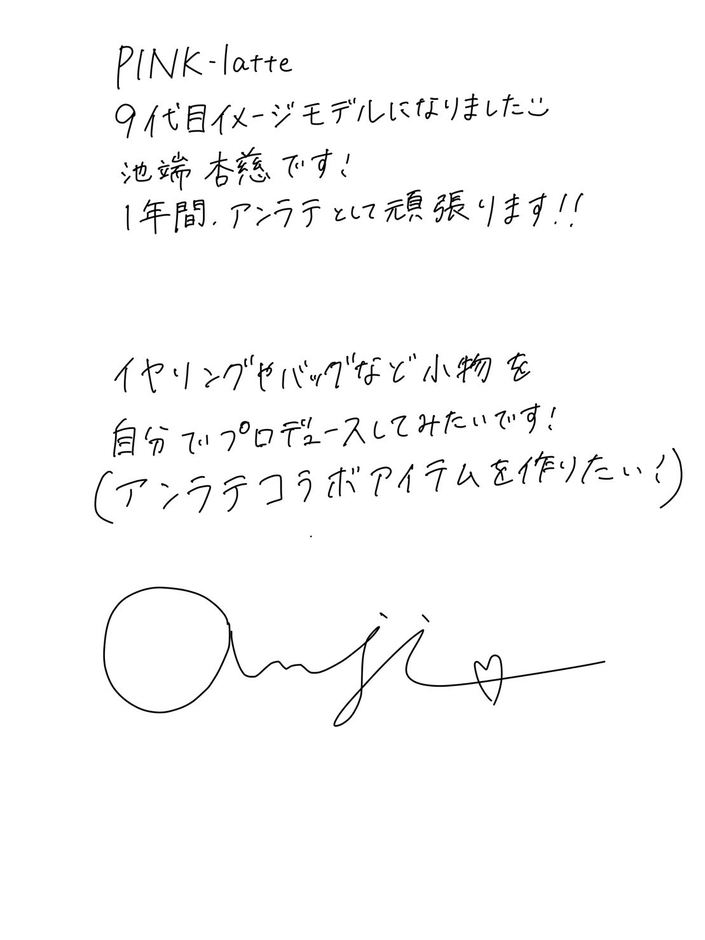 PINK-latte
9代目イメージモデルになりました
池端 杏慈です!
1年間、アンラテとして頑張ります!!
イヤリングやバッグなど小物を
自分でプロデュースしてみたいです!
(アンラテコラボアイテムを作りたい!)
anji